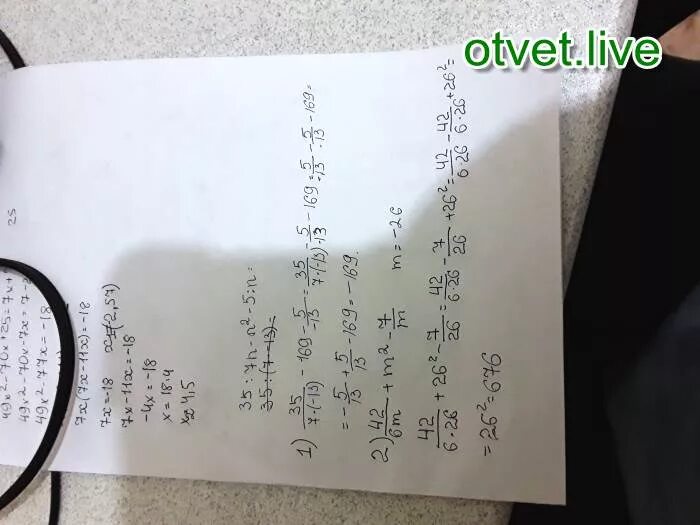 otvet.live
25
49x²-70x+25=7x+
49x²-70x-7x=7-2
49x²-77x=-18
7x(7x-11x)=-18
7x=-18
7x-11x=-18
-4x=-18
x=18:4
x=4,5
35:7n-n²-5:n=
35:(7·-13)=
1) 35/(7·(-13)) -169-5/-13=35/(7·(-13)·13)-5/-13-169=5/-13-5/-13-169=
=-5/13+5/13-169=-169.
2) 42/6m+m²-7/m m=-26
42/(6·26)+26²-7/26=42/(6·26)-7/26+26²=42/(6·26)-42/(6·26)+26²=
=26²=676